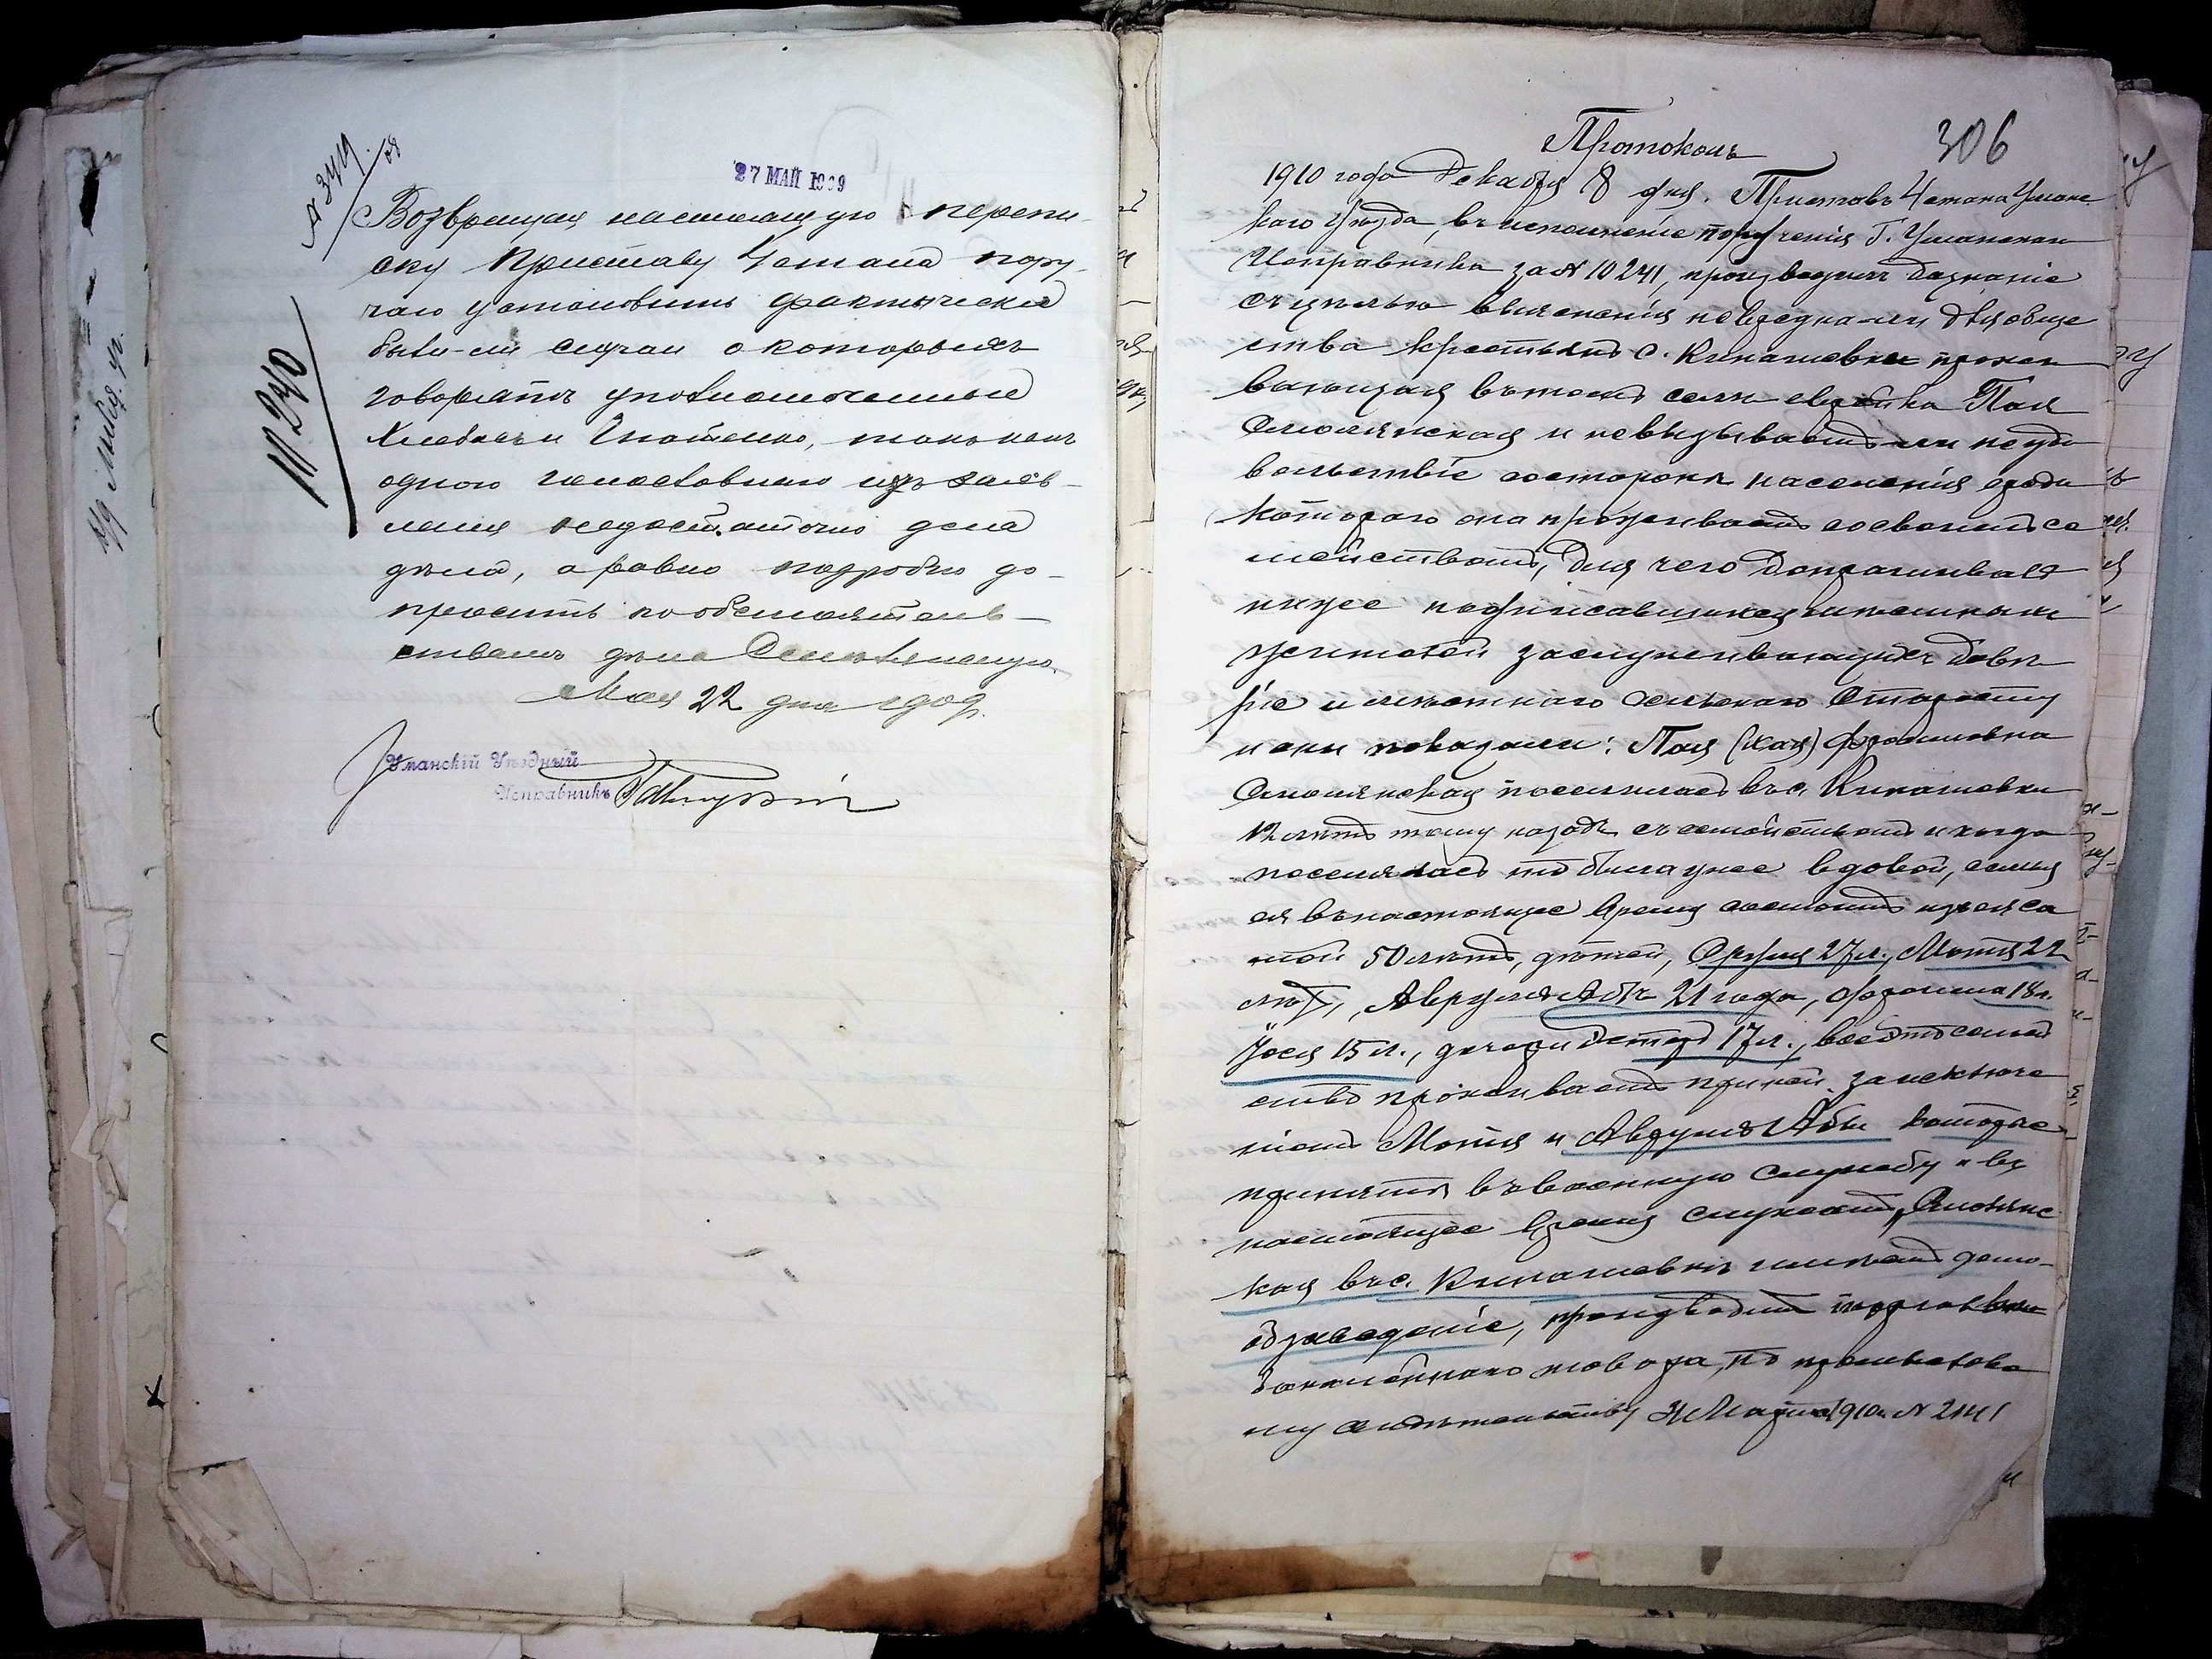 27 МАЙ 1909
№ 3419
Возвращая настоящую перепи-
ску Приставу 4 стана пору-
чаю установить фактически
были-ли случаи о которыхъ
говорятъ уполномоченные
и Игнатенко, такъ какъ
одного голословнаго заяв-
ленія недостаточно для
дѣла, а равно подробно до-
просить по обстоятель-
ствамъ дѣла Смолянскую.
Мая 22 дня 1909 г.
Уманскій Уѣздный
Исправникъ
№ 240
306
Протоколъ
1910 года Декабря 8 дня. Приставъ 4 стана Уманс
каго уѣзда, въ исполненіе порученія Г. Уманскаго
Исправника за № 10241, производилъ дознаніе
съ цѣлью выясненія не вредна-ли для обще
ства крестьянъ с. Кинашевки прожи
вающая въ томъ селѣ еврейка Пая
Смолянская и не вызываетъ-ли неудо
вольствіе со стороны населенія среди
котораго она проживаетъ со своимъ се
мействомъ, для чего допрашивалъ
ниже подписавшихся
жителей заслуживающихъ довѣ
рія и мѣстнаго сельскаго Старосту
и они показали: Пая (Хая) Фроимовна
Смолянская поселилась въ с. Кинашевки
12 лѣтъ тому назадъ съ семействомъ и когда
поселялась то была уже вдовой, семья
ея въ настоящее время состоитъ изъ ея са
мой 50 лѣтъ, дѣтей, 27 л., Мотя 22
лѣтъ, Аврумъ Аба 21 года, Фроима 18 л.
Іося 15 л., дочери 17 л., все это семей
ство проживаетъ при ней за исключе
ніемъ Мотя и Аврумъ Абы которые
приняты въ военную службу и въ
настоящее время служатъ, Смолянс
кая въ с. Кинашевкѣ имѣетъ домо-
обзаведеніе, производитъ торговлю
бакалейнаго товара, по промыслово
му свидѣтельству Марта 1910 г. №